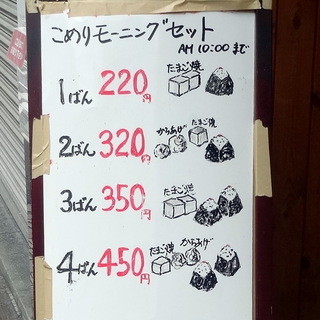 こめりモーニングセット
AM 10:00まで
たまご焼
1ばん 220円
からあげ たまご焼
2ばん 320円
たまご焼
3ばん 350円
たまご焼 からあげ
4ばん 450円